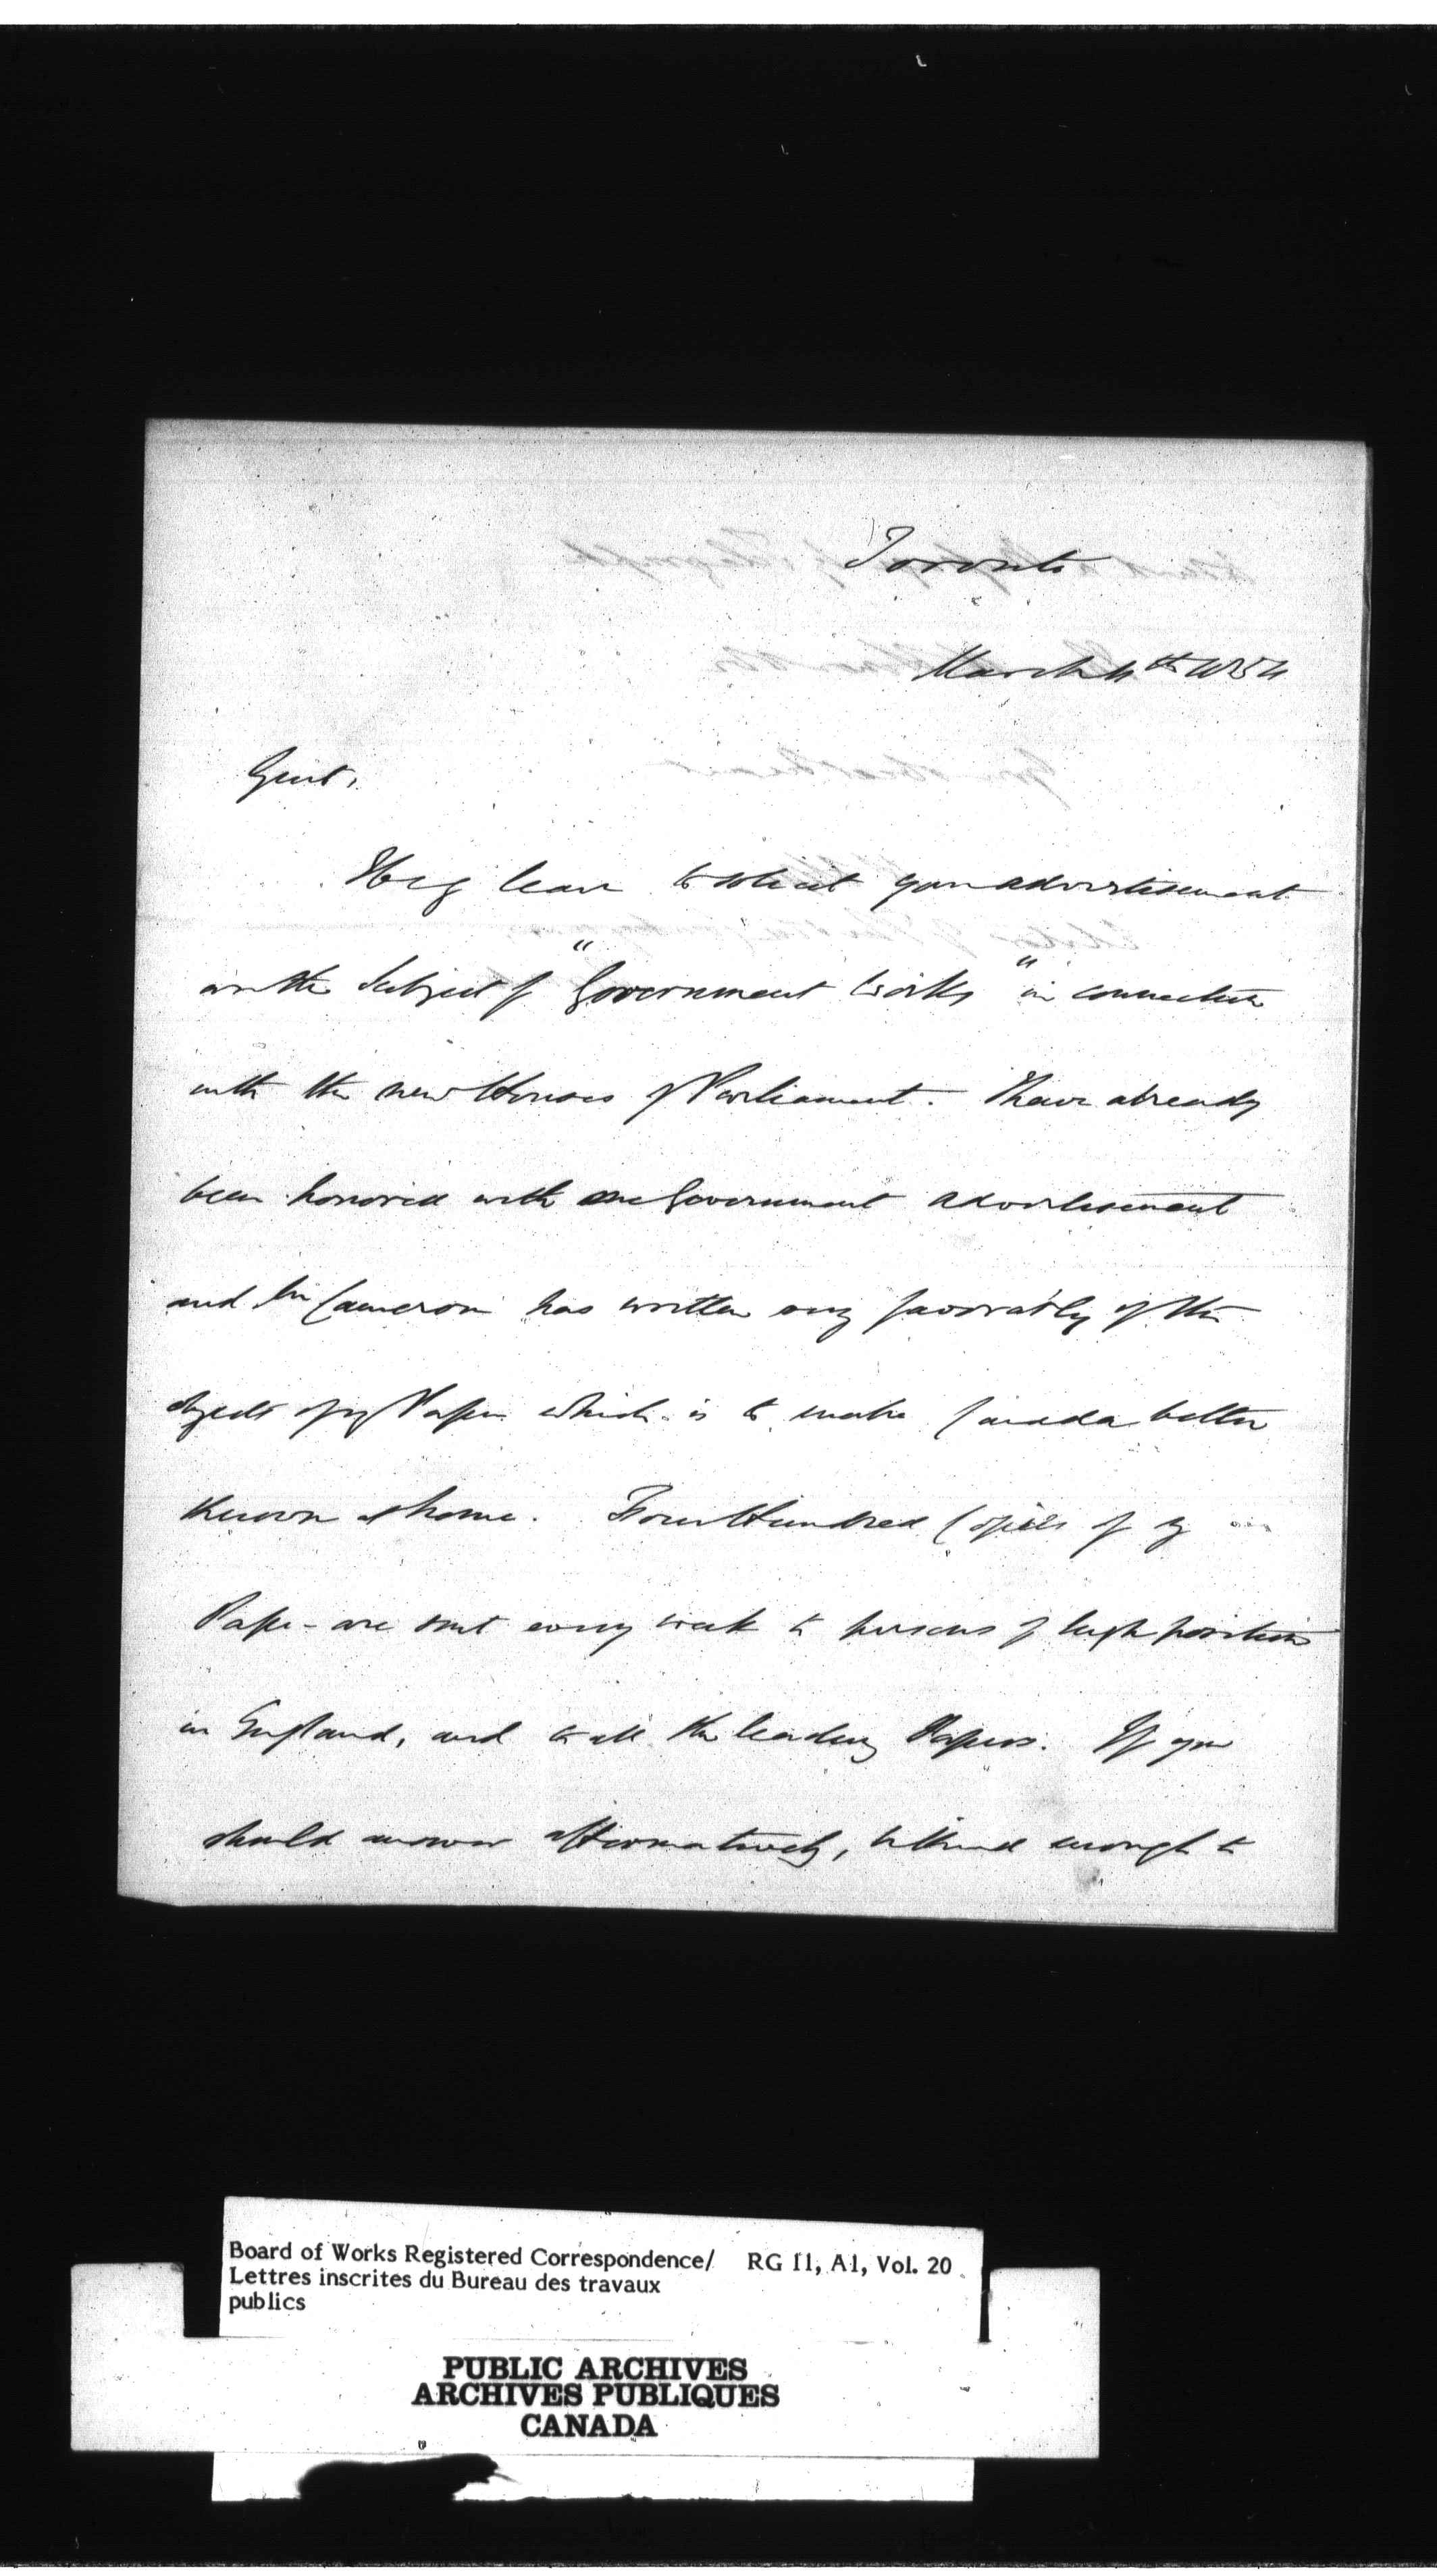 Toronto
March 4th 1854
Gent,
I beg leave to solicit your advertisement
on the Subject of "Government Works" in connection
with the new Houses of Parliament. I have already
been honored with one Government advertisement
and Mr Cameron has written very favorably of the
objects of my Paper which is to make Canada better
known at home. Four Hundred Copies of my
Paper are sent every week to persons of high position
in England, and to all the leading Papers. If you
should answer affirmatively, be kind enough to
Board of Works Registered Correspondence/ RG 11, A1, Vol. 20
Lettres inscrites du Bureau des travaux
publics
PUBLIC ARCHIVES
ARCHIVES PUBLIQUES
CANADA